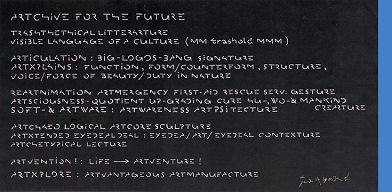 ARTCHIVE FOR THE FUTURE
TRASHTHETHICAL LITTERARTURE
VISIBLE LANGUAGE OF A CULTURE (MM trashold MMM)
ARTICULATION : BIG-LOGOS-BANG SIGNATURE
ARTXPLAINS : FUNCTION, FORM/COUNTERFORM, STRUCTURE,
VOICE/FORCE OF BEAUTY/DUTY IN NATURE
REARTNIMATION ARTMERGENCY FIRST-AID RESCUE SERV. GESTURE
ARTSCIOUSNESS-QUOTIENT UP-GRADING CURE HU-, WO- & MANKIND
SOFT- & ARTWARE : ARTWARENESS ARTPSITECTURE CREARTURE
ARTCHAEO LOGICAL ARTCORE SCULPTURE
ARTXTENDED EYEDEALOGUE : EYEDEA/ART/EYEDEAL CONTEXTURE
ARTCHETYPICAL LECTURE
ARTVENTION! : LIFE → ARTVENTURE!
ARTXPLORE : ARTVANTAGEOUS ARTMANUFACTURE